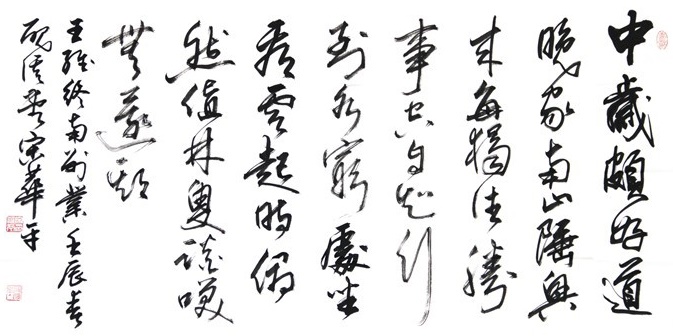 中歲頗好道
晚家南山陲興
来每獨往勝
事空自知行
到水窮處坐
看雲起時偶
然值林叟談咲
無還期
王維終南別業壬辰春
宋華平